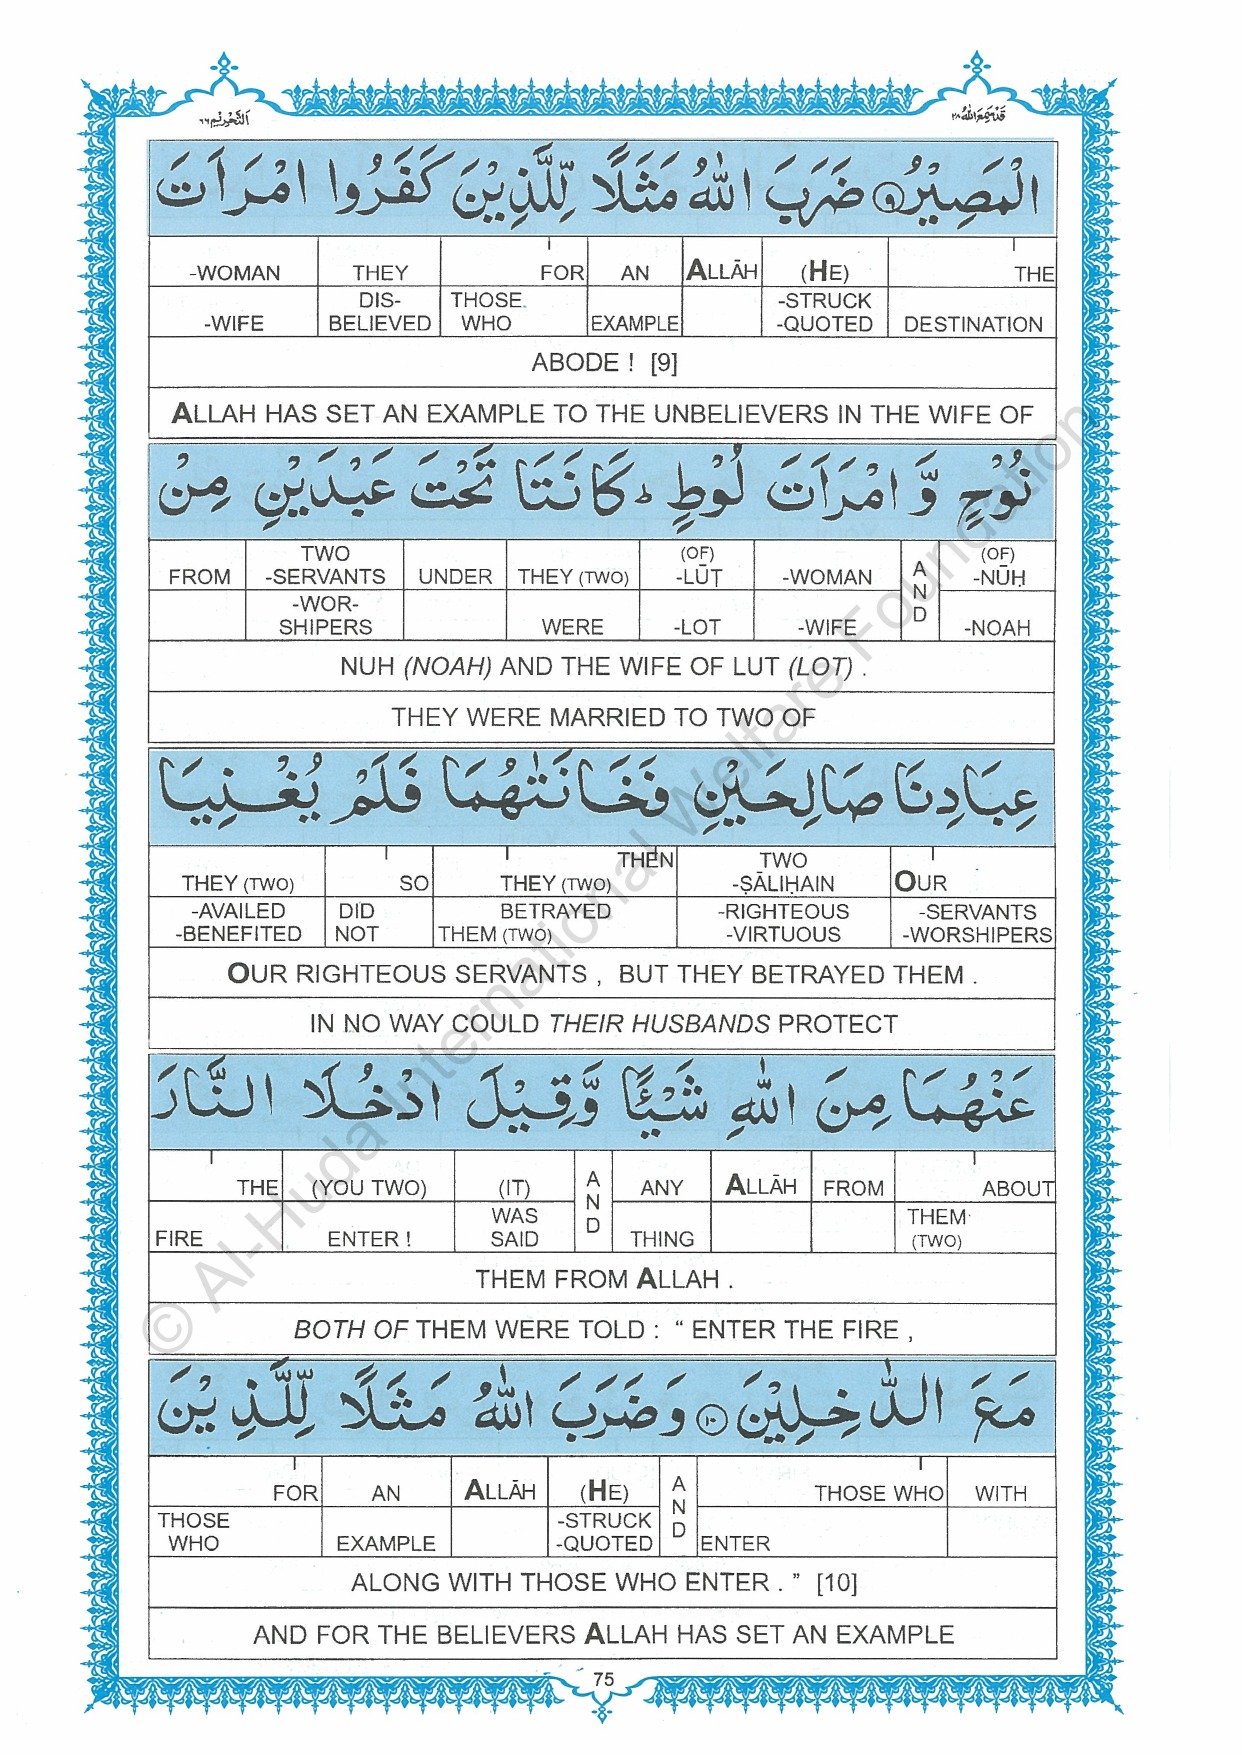 اَلتَّحْرِيْم ٦٦
قَدْ سَمِعَ اللّٰهُ ٢٨
الْمَصِيْرُ ۹ ضَرَبَ اللّٰهُ مَثَلًا لِّلَّذِيْنَ كَفَرُوا امْرَاَتَ
-WOMAN THEY FOR AN ALLĀH (HE) THE
-WIFE DIS-BELIEVED THOSE WHO EXAMPLE -STRUCK -QUOTED DESTINATION
ABODE ! [9]
ALLAH HAS SET AN EXAMPLE TO THE UNBELIEVERS IN THE WIFE OF
نُوْحٍ وَّ امْرَاَتَ لُوْطٍ ؕ كَانَتَا تَحْتَ عَبْدَيْنِ مِنْ
FROM TWO -SERVANTS UNDER THEY (TWO) (OF) -LŪṬ -WOMAN AND (OF) -NŪḤ
-WOR-SHIPERS WERE -LOT -WIFE -NOAH
NUH (NOAH) AND THE WIFE OF LUT (LOT) .
THEY WERE MARRIED TO TWO OF
عِبَادِنَا صَالِحَيْنِ فَخَانَتٰهُمَا فَلَمْ يُغْنِيَا
THEY (TWO) SO THEY (TWO) THEN TWO -ṢĀLIḤAIN OUR
-AVAILED -BENEFITED DID NOT BETRAYED THEM (TWO) -RIGHTEOUS -VIRTUOUS -SERVANTS -WORSHIPERS
OUR RIGHTEOUS SERVANTS , BUT THEY BETRAYED THEM .
IN NO WAY COULD THEIR HUSBANDS PROTECT
عَنْهُمَا مِنَ اللّٰهِ شَيْـًٔا وَّقِيْلَ ادْخُلَا النَّارَ
THE (YOU TWO) (IT) AND ANY ALLĀH FROM ABOUT
FIRE ENTER ! WAS SAID THING THEM (TWO)
THEM FROM ALLAH .
BOTH OF THEM WERE TOLD : “ ENTER THE FIRE ,
مَعَ الدّٰخِلِيْنَ ۱۰ وَضَرَبَ اللّٰهُ مَثَلًا لِّلَّذِيْنَ
FOR AN ALLĀH (HE) AND THOSE WHO WITH
THOSE WHO EXAMPLE -STRUCK -QUOTED ENTER
ALONG WITH THOSE WHO ENTER . ” [10]
AND FOR THE BELIEVERS ALLAH HAS SET AN EXAMPLE
75
© Al-Huda International Welfare Foundation